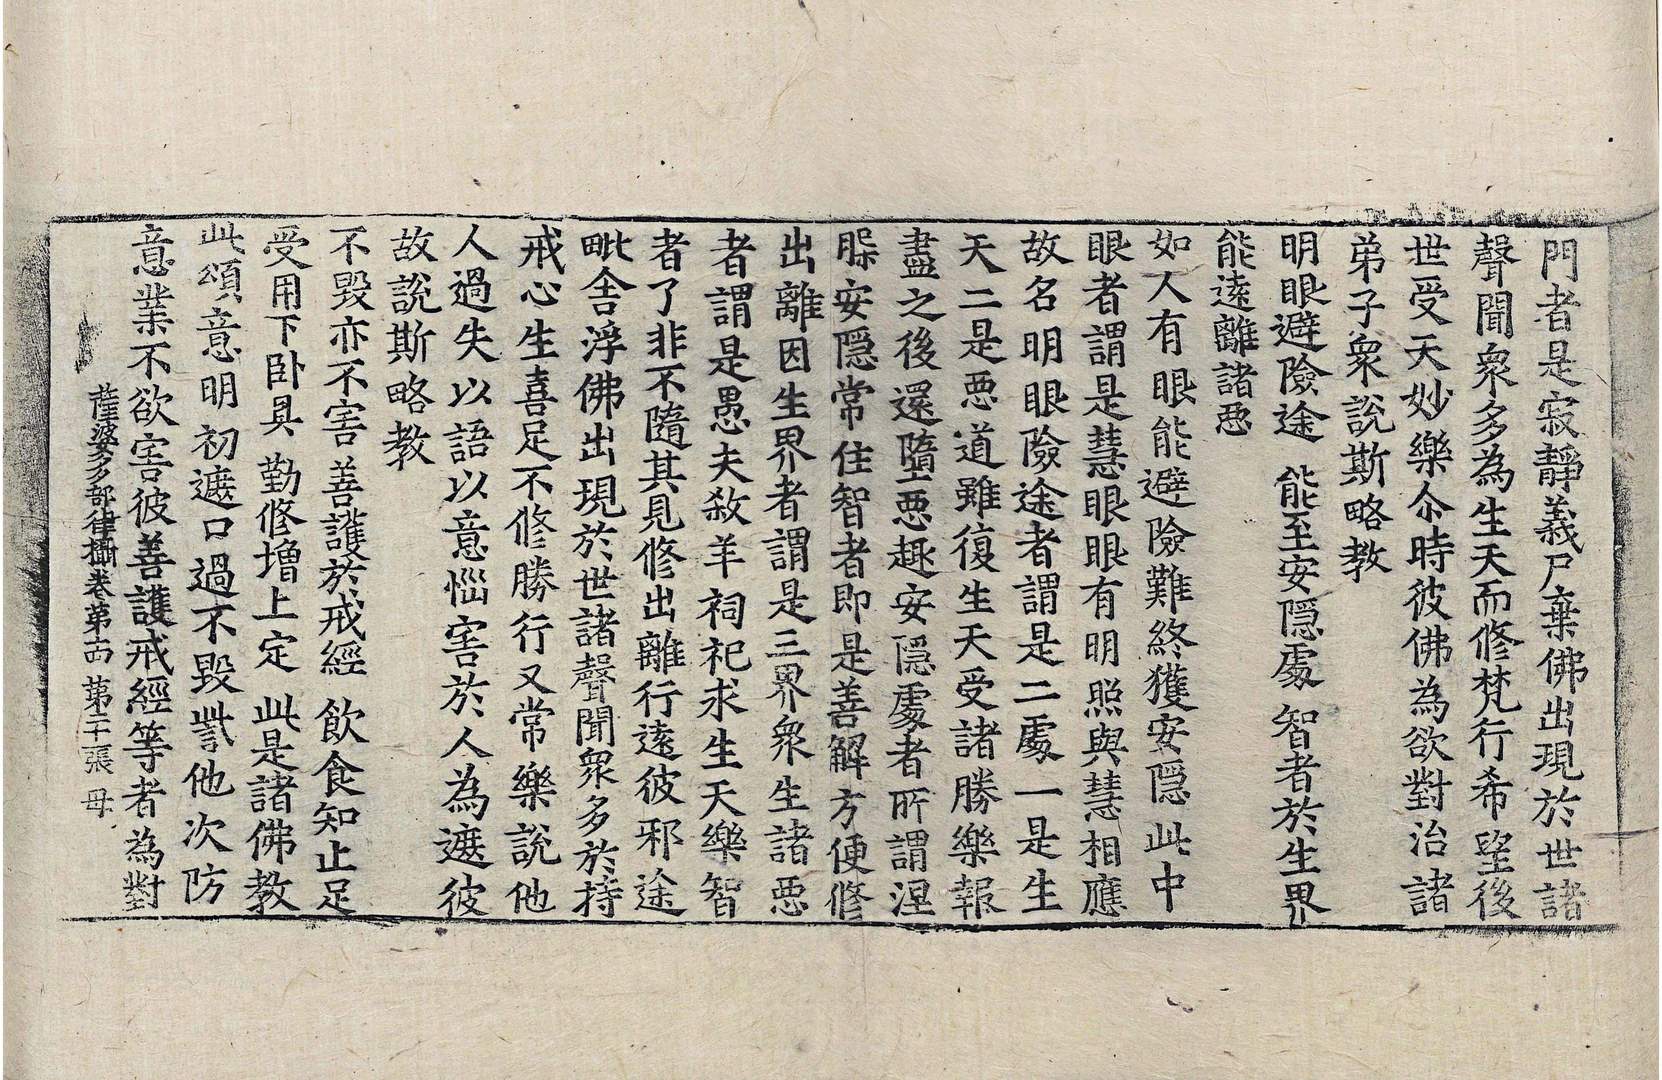 門者是寂靜義尸棄佛出現於世諸
聲聞衆多為生天而修梵行希望後
世受天妙樂尒時彼佛為欲對治諸
弟子衆說斯略教
明眼避險途 能至安隱處 智者於生界
能遠離諸惡
如人有眼能避險難終獲安隱此中
眼者謂是慧眼眼有明照與慧相應
故名明眼險途者謂是二處一是生
天二是惡道雖復生天受諸勝樂報
盡之後還墮惡趣安隱處者所謂涅
槃安隱常住智者即是善解方便修
出離因生界者謂是三界衆生諸惡
者謂是愚夫殺羊祠祀求生天樂智
者了非不隨其見修出離行遠彼邪途
毗舍浮佛出現於世諸聲聞衆多於持
戒心生喜足不修勝行又常樂說他
人過失以語以意惱害於人為遮彼
故說斯略教
不毀亦不害 善護於戒經 飲食知止足
受用下卧具 勤修增上定 此是諸佛教
此頌意明初遮口過不毀訾他次防
意業不欲害彼善護戒經等者為對
薩婆多部律攝卷第十四 第二十張 母